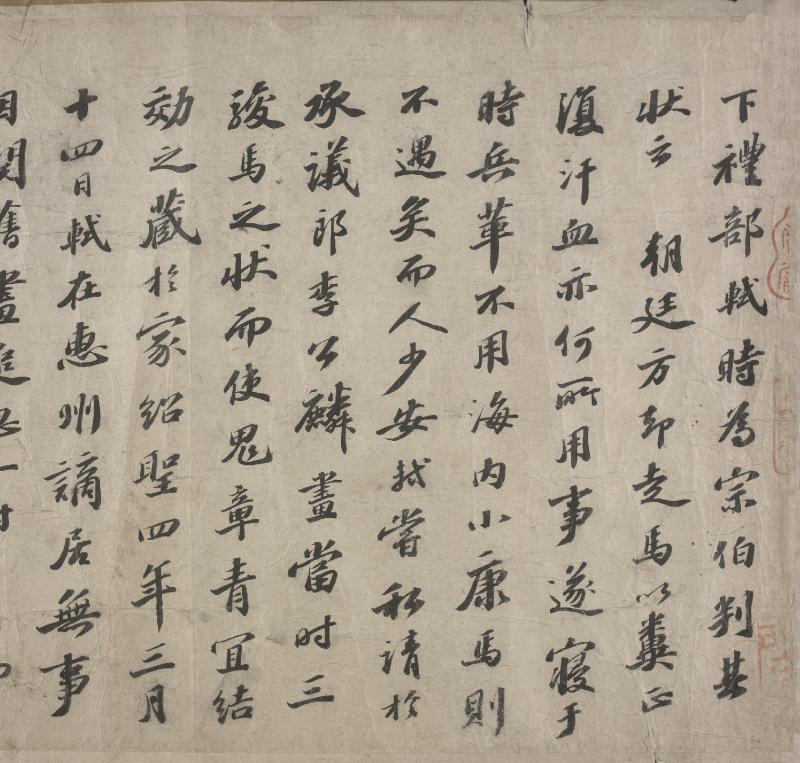 下禮部軾時為宗伯判其
状云 朝廷方却走馬以糞正
復汗血亦何所用事遂寢于
時兵革不用海内小康馬則
不遇矣而人少安軾嘗私請於
承議郎李公麟畫當时三
駿馬之状而使鬼章青宜结
効之藏於家紹聖四年三月
十四日軾在惠州謫居無事